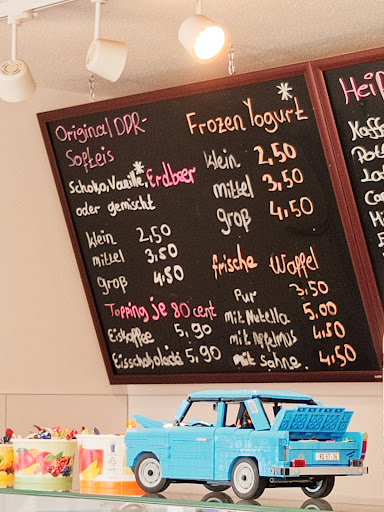 Original DDR-
Softeis
Schoko, Vanille, Erdbeer
oder gemischt
klein 2,50
mittel 3,50
groß 4,50
Topping je 80 cent
Eiskaffee 5,90
Eisschokolade 5,90
Frozen Yogurt
klein 2,50
mittel 3,50
groß 4,50
frische Waffel
Pur 3,50
mit Nutella 5,00
mit Apfelmus 4,50
mit Sahne 4,50